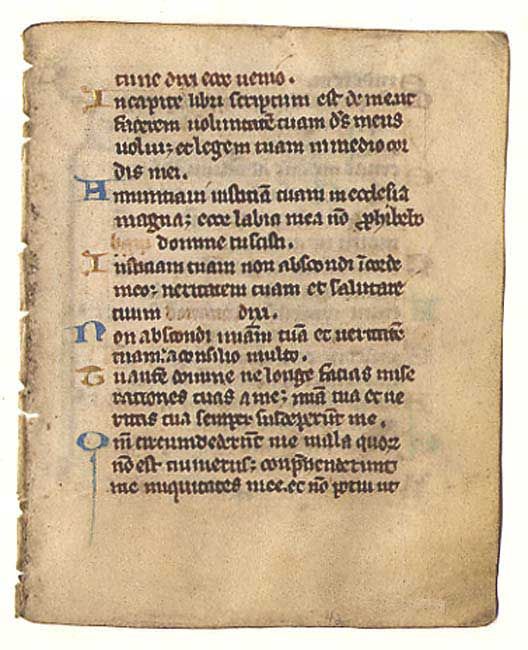 tunc dixi ecce uenio.
In capite libri scriptum est de me ut
facerem uoluntatē tuam ds̄ meus
uolui; et legem tuam in medio cor
dis mei.
Annunciaui iusticiā tuam in ecclesia
magna; ecce labia mea nō ꝓhibebo
domine tu scisti.
Iusticiam tuam non abscondi ī corde
meo; ueritatem tuam et salutare
tuum dixi.
Non abscondi mīam tuā et ueritatē
tuam: a consilio multo.
Tu autē domine ne longe facias mise
rationes tuas a me; mīa tua et ue
ritas tua semꝑ susceperūt me.
Qm̄ circumdederūt me mala quoꝝ
nō est numerus; conp̄henderunt
me iniquitates mee. et nō potui ut